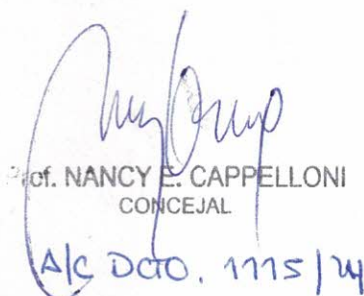 Prof. NANCY E. CAPPELLONI
CONCEJAL
A/C DCTO. 1115/24